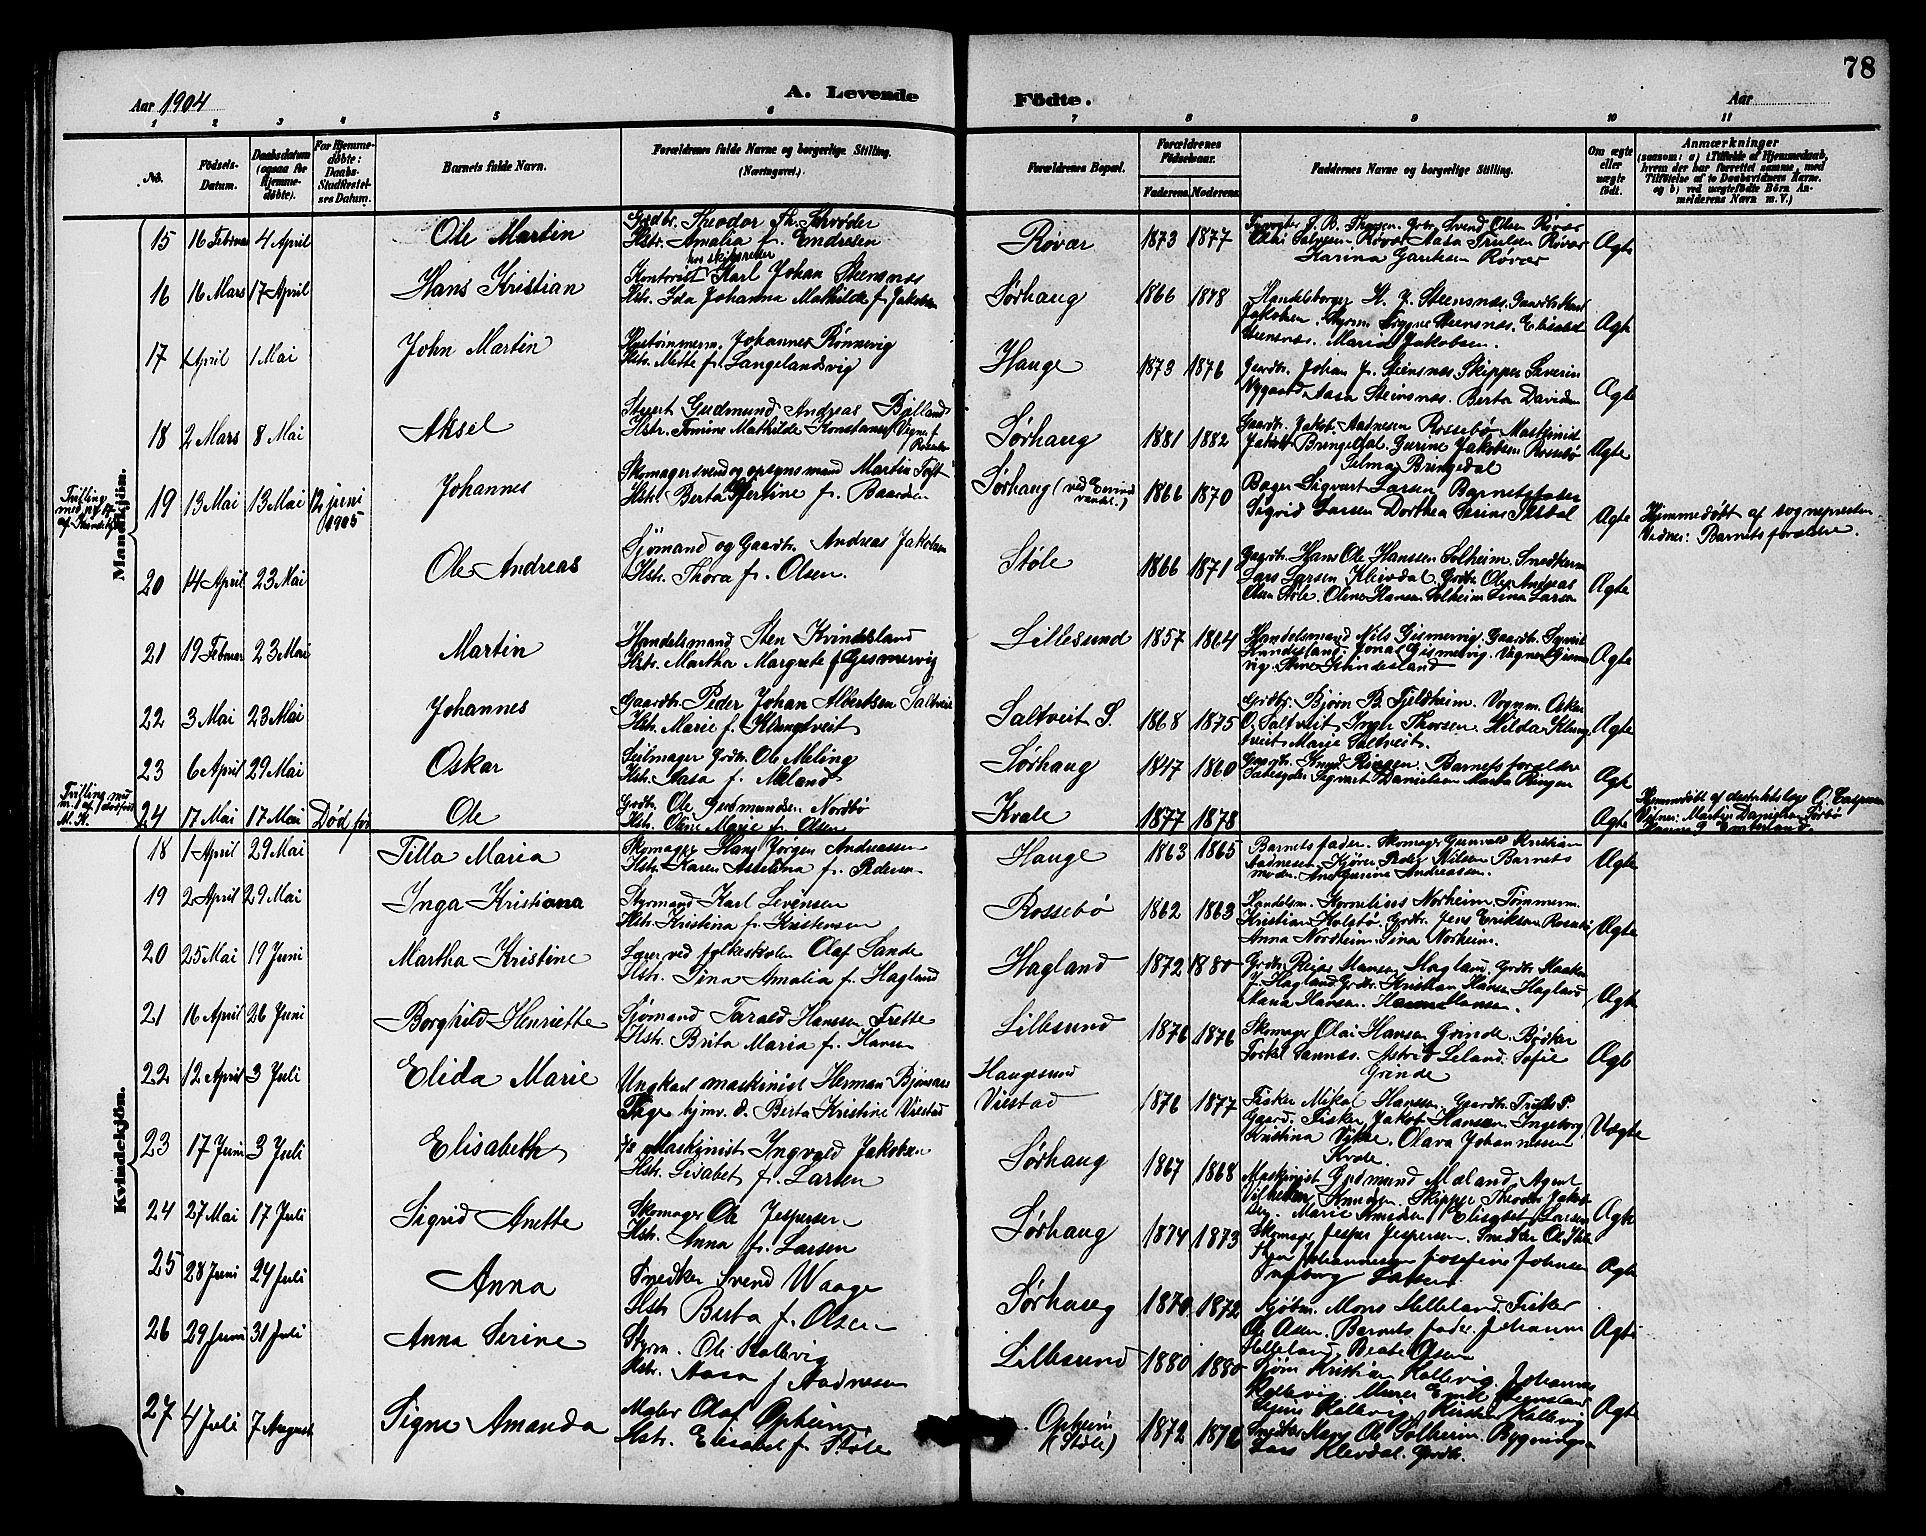 78
Aar 1904
A. Levende Födte.
Aar
1 2 3 4 5 6 7 8 9 10 11
No.
Födsels-Datum.
Daabsdatum (ogsaa for Hjemme-döbte).
For Hjemme-döbte: Daabs-Stadfæstel-ses Datum.
Barnets fulde Navn.
Forældrenes fulde Navne og borgerlige Stilling. (Næringsvei.)
Forældrenes Bopæl.
Forældrenes Födselsaar.
Faderens. Moderens.
Faddernes Navne og borgerlige Stilling.
Om ægte eller uægte födt.
Anmærkninger
(saasom: a) i Tilfælde af Hjemmedaab, hvem der har forrettet samme, med Tilföielse af to Daabsvidners Navne, og b) ved uægtefödte Börn An-melderens Navn m. V.)
Mandkjön.
15 16 Februar 4 April Ole Martin
Grdbr. Theodor Th. Schrøder
Hstr. Amalia f. Endresen
Røvær 1873 1877
Svend Olsen Røvær
Røvær Aasa Trulsen Røvær
Karina Gautesen Røvær
Ægte
16 16 Mars 17 April Hans Kristian
hos skibsreder
Kontorist Karl Johan Steensnæs
Hstr. Ida Johanna Mathilde f. Jakobsen
Sørhaug 1866 1878
Handelsborger H. J. Steensnæs, Gaardbr.
Jakobsen. Styrm. Trygve Steensnæs. Elisabet
Steensnæs. Maria Jakobsen.
Ægte
17 April 1 Mai John Martin
Hustømmerm. Johannes Rønnevig
Hstr. Mette f. Langelandsvig
Hauge 1873 1876
Grdbr. Johan J. Stensnæs Skipper Severin
Nygaard, Aasa Steinsnæs. Berta Davidsen
Ægte
18 2 Mars 8 Mai Aksel
Stuert Gudmund Andreas Bjelland
Hstr. Tomine Mathilde Konstanse
Sørhaug 1881 1882
Gaardbr. Jakob Aadnesen Rossebø Maskinist
Jakob Bringedal Gurine Jakobsen Rossebø
Selma Bringedal
Ægte
Trilling
19 13 Mai 13 Mai 12 juni 1905 Johannes
Skomagersvend og opsynsmand Martin Toft
Hstr. Berta Bertine f. Baardsen
Sørhaug (ved Eivindsvandet.) 1866 1870
Bager Sigvart Larsen Barnets fader
Sigrid Larsen Dorthea Serine Østbøl
Ægte
Hjemmedøbt af sognepresten
Vidner: Barnets forældre.
20 14 April 23 Mai Ole Andreas
Sjømand og Gaardbr. Andreas Jakobsen
Hstr. Thora f. Olsen.
Støle 1866 1871
Gaardbr. Hans Ole Hanssen Solheim Snedkerm
Lars Larsen Klevdal Grdbr. Ole Andreas
Olsen Støle. Oline Hansen Solheim Sina Larsen
Ægte
21 19 Februar 23 Mai Martin
Handelsmand Sten Kvindesland
Hstr. Martha Margrete f Gismervig
Lillesund 1857 1864
Handelsmand Nils Gismervig. Gaardbr. Syvert
Kvindesland Jonas Gismervig. Vognm. Gismervig.
Kvindesland
Ægte
22 3 Mai 23 Mai Johannes
Gaardbr. Peder Johan Albertsen Saltveit
Hstr. Marie f. Klungtveit
Saltveit S. 1868 1875
Grdbr. Bjørn B. Fjeldheim. Vognm. Oskar
O. Saltveit Inger Thorsen. Hilda Klungtveit
Marie Saltveit.
Ægte
23 6 April 29 Mai Oskar
Seilmager Grdbr. Ole Meling
Hstr. Aasa f. Mæland
Sørhaug 1847 1860
Gaardbr. Knud Ringen. Barnets forældre
Sigvart Danielsen Marta Ringen
Ægte
Trilling med
24 17 Mai 17 Mai Død før Ole
Grdbr. Ole Gudmundsen Nordbø
Hstr. Oline Marie f. Olsen
Kvale 1877 1878
Ægte
Hjemmedøbt af distriktslæge
Vidner: Martin Danielsen
Kvindekjön.
18 1 April 29 Mai Tilla Maria
Skomager Hans Jørgen Andreassen
Hstr. Karen Asselina f. Pedersen
Hauge 1863 1865
Barnets fader. Skomager Gunvald Kristian
Aadnesen Kjører Peder Nilsen Barnets
moder. Ane Gurine Andreassen.
Ægte
19 2 April 29 Mai Inga Kristiana
Styrmand Karl Levensen
Hstr. Kristina f. Kristensen
Rossebø 1862 1863
Handelsm. Kornelius Norheim Tømmerm.
Kristian Holsbø. Grdbr. Jens Eriksen
Anna Nordheim. Sina Norheim.
Ægte
20 25 Mai 19 Juni Martha Kristine
Lærer ved folkeskolen Olaf Sande
Hstr. Sina Amalia f. Hagland
Hagland 1872 1880
Grdbr. Reias Hansen Hagland. Grdbr. Haaken
J. Hagland Grdbr. Kristian Hansen Hagland
Maria Hansen. Hanna Hansen.
Ægte
21 16 April 26 Juni Borghild Henriette
Sjømand Tarald Hanssen Trette
Hstr. Brita Maria f. Hansen
Lillesund 1876 1876
Skomager Olai Hansen Grinde. Bødker
Torkel Sannes. Astrid Leland. Sofie
Grinde
Ægte
22 12 April 3 Juli Elida Marie
Ungkarl maskinist Herman Bjønnes
Pige hjmv. d. Berta Kristine Viestad
Haugesund
Viestad 1876 1877
Fisker Mikal Hanssen. Gaardbr. Truls P.
Gaard. Fisker Jakob Hansen. Ingeborg
Kristina Vikse. Olava Johannessen
Kvale.
Uægte
23 17 Juni 3 Juli Elisabeth
Maskinist Ingvald Jakobsen
Hstr. Lisabet f. Larsen
Sørhaug 1867 1868
Maskinist Gudmund Mæland. Agent
Vilhelm Knudsen. Skipper Theodor
Marie Knudsen Elisabet Larsen
Ægte
24 27 Mai 17 Juli Sigrid Anette
Skomager Ole Jespersen
Hstr. Anna f. Larsen
Sørhaug 1874 1873
Skomager Jesper Jespersen. Snedker Ole
Johannessen Josefine Johnsen
Ingeborg Larsen
Ægte
25 28 Juni 24 Juli Anna
Snedker Svend Waage
Hstr. Berta f. Olsen
Sørhaug 1870 1872
Kjøbm. Mons Helleland. Fisker
Ole Olsen. Barnets fader. Johanne
Helleland. Beate Olsen
Ægte
26 29 Juni 31 Juli Anna Serine
Styrm. Ole Kallevig
Hstr. Aasa f. Aadnesen
Lillesund 1880 1880
Sjøm Kristian Kallevig Johannes
Kallevig. Murer Emil
Kallevig. Kirstine Kallevig
Ægte
27 4 Juli 7 August Signe Amanda
Maler Olaf Opheim
Hstr. Elisabet f. Støle
Opheim
(Støle) 1872 1876
Snedker Hans Ole Solheim. Bygnings
Lars Klevdal. Grdbr.